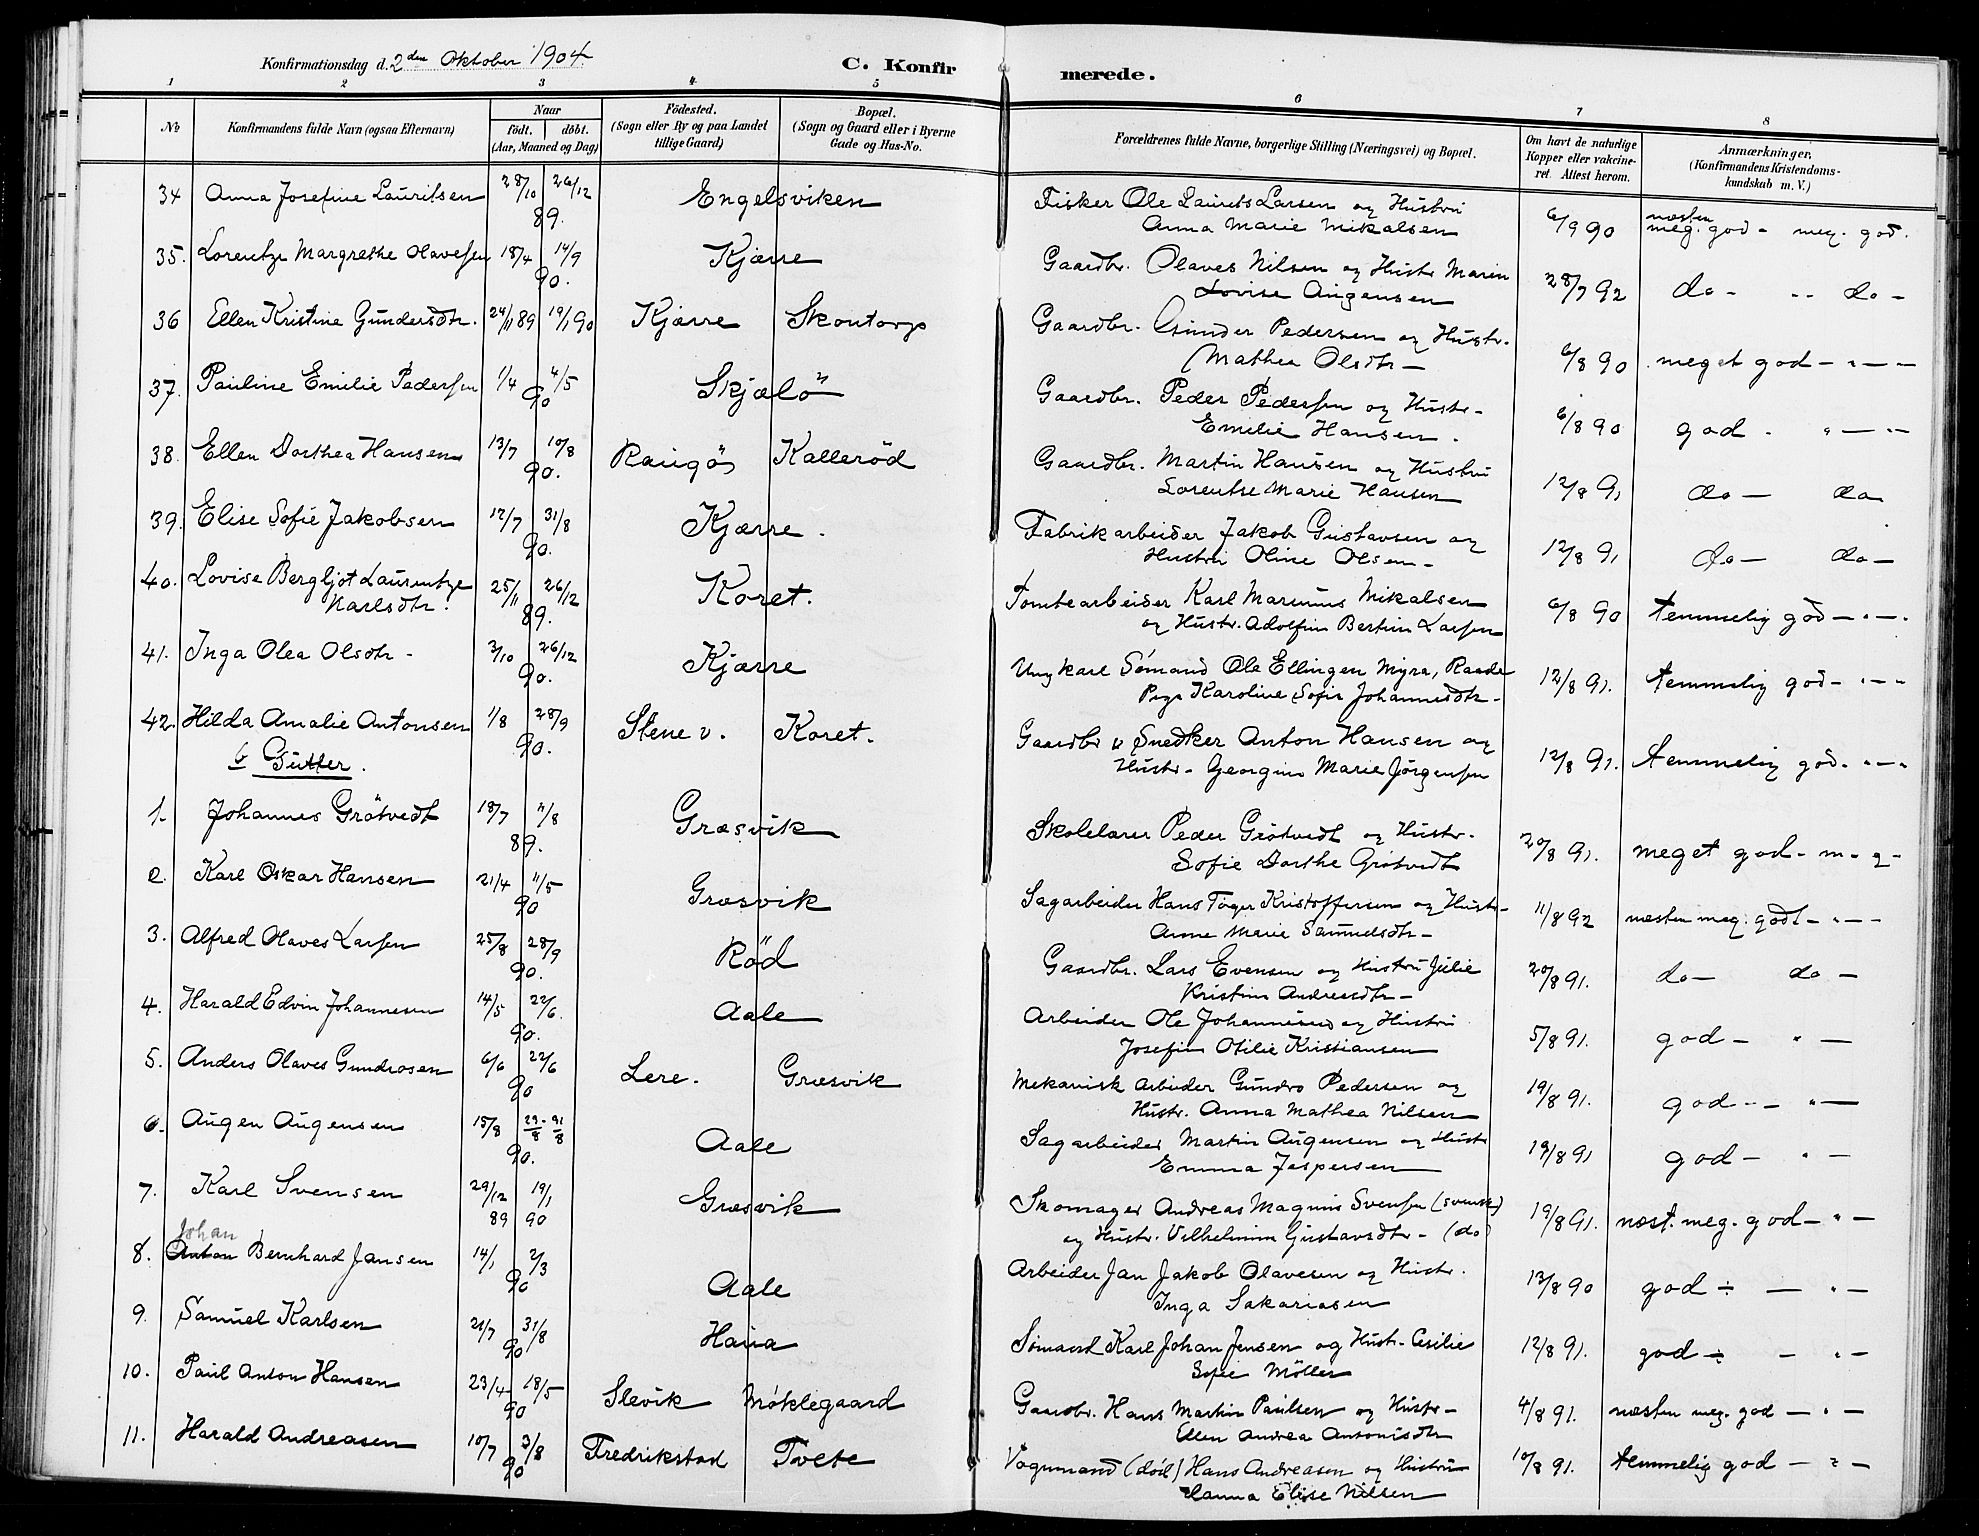 Konfirmationsdag d. 2den Oktober 1904
C. Konfirmerede.
1 2 3 4 5 6 7 8
No
Konfirmandens fulde Navn (ogsaa Efternavn)
Naar
födt. döbt.
(Aar, Maaned og Dag)
Födested.
(Sogn eller By og paa Landet
tillige Gaard)
Bopæl.
(Sogn og Gaard eller i Byerne
Gade og Hus-No.
Forældrenes fulde Navne, borgerlige Stilling (Næringsvei) og Bopæl.
Om havt de naturlige
Kopper eller vakcine-
ret. Attest herom.
Anmærkninger,
(Konfirmandens Kristendoms-
kundskab m. V.)
34 Anna Josefine Lauritsen 28/10 26/12 89. Engelsviken Fisker Ole Laurits Larsen og Hustru
Anna Marie Mikalsen 6/9 90 næsten meg. god - meg. god.
35. Lorentze Margrethe Olavesen 18/4 14/9 90. Kjærre Gaardbr. Olaves Nilsen og Hustr. Maren
Lovise Augensen 28/7 92 do - " do -
36 Ellen Kristine Gundersdtr. 24/11 89 19/1 90 Kjærre Skontorp Gaardbr. Gunder Pedersen og Hustr.
Mathea Olsdtr - 6/8 90 meget god - " -
37. Pauline Emilie Pedersen 1/4 4/5 90 Skjælö Gaardbr. Peder Pedersen og Hustr-
Emelie Hansen. 6/8 90 god - " -
38. Ellen Dorthea Hansen 13/7 10/8 90. Raugö Kallerød Gaardbr. Martin Hansen og Hustru
Lorentse Marie Hansen 12/8 91 do - do
39. Elise Sofie Jakobsen 12/7 31/8 90. Kjærre. Fabrikarbeider Jakob Gustavsen og
Hustru Oline Olsen - 12/8 91 do - do -
40. Lovise Bergljot Laurentze
Karlsdtr. 25/11 26/12 89. Koret. Tomtearbeider Karl Marinus Mikalsen
og Hustr. Adolfin Bertin Larsen 6/8 90 temmelig god - " -
41. Inga Olea Olsdtr - 3/10 26/12 90. Kjærre Ungkarl Sömand Ole Ellingen Myra, Raade
Pige Karoline Sofie Johannesdtr - 12/8 91. temmelig god - " -
42. Hilda Amalie Antonsen 1/8 28/9 90. Stene v. Koret. Gaardbr & Snedker Anton Hansen og
Hustr - Georgine Marie Jörgensen 12/8 91. temmelig god. " -
b Gutter.
1. Johannes Grötvedt 18/7 11/8 89. Græsvik Skolelærer Peder Grötvedt og Hustr.
Sofie Dorthe Grötvedt 20/8 91. meget god - m - g -
2. Karl Oskar Hansen 21/4 11/5 90 Græsvik Sagarbeider Hans Töger Kristoffersen og Hustr-
Anne Marie Samuelsdtr - 11/8 92 næsten meg. godt - " -
3. Alfred Olaves Larsen 25/8 28/9 90. Röd Gaardbr. Lars Evensen og Hustru Julie
Kristine Andreasdtr - 20/8 91. do - do -
4. Harald Edvin Johannesen 14/5 22/6. 90. Aale Arbeider Ole Johannesen og Hustru
Josefin Otilie Kristiansen 5/8 91. god - " -
5. Anders Olaves Gundrosen 6/6 22/6 90 Lere. Græsvik Mekanisk arbeider Gundro Pedersen og
Hustr. Anna Mathea Nilsen 19/8 91. god - - " -
6. Augen Augensen 15/8 29/8 - 31/8 90. Aale Sagarbeider Martin Augensen og Hustr
Emma Jespersen 19/8 91 god - " -
7. Karl Svensen 29/12 89 19/1 90 Græsvik Skomager Andreas Magnus Svensen (svensk)
og Hustr. Vilhelmine Gustavsdtr - (do) 19/8 91. næst. meg. god - " -
Johan
8. Anton Bernhard Jansen 14/1 2/3 90 Aale Arbeider Jan Jakob Olavesen og Hustr.
Inga Sakariasen 13/8 90 god ÷ - " -
9. Samuel Karlsen 21/7 31/8 90 Haua Sömand Karl Johan Jensen og Hustr. Cecilie
Sofie Möller 12/8 91. god ÷ - " -
10. Paul Anton Hansen 23/4 18/5 90 Slevik Møklegaard Gaardbr. Hans Martin Paulsen og Hustr -
Ellen Andrea Antonisdtr 4/8 91. næsten meg. god - " -
11. Harald Andreasen 10/7 3/8 90 Fredrikstad Tvete Vognmand (död) Hans Andreasen og Hustru
Hanna Elise Nilsen 10/8 91. temmelig god - " -